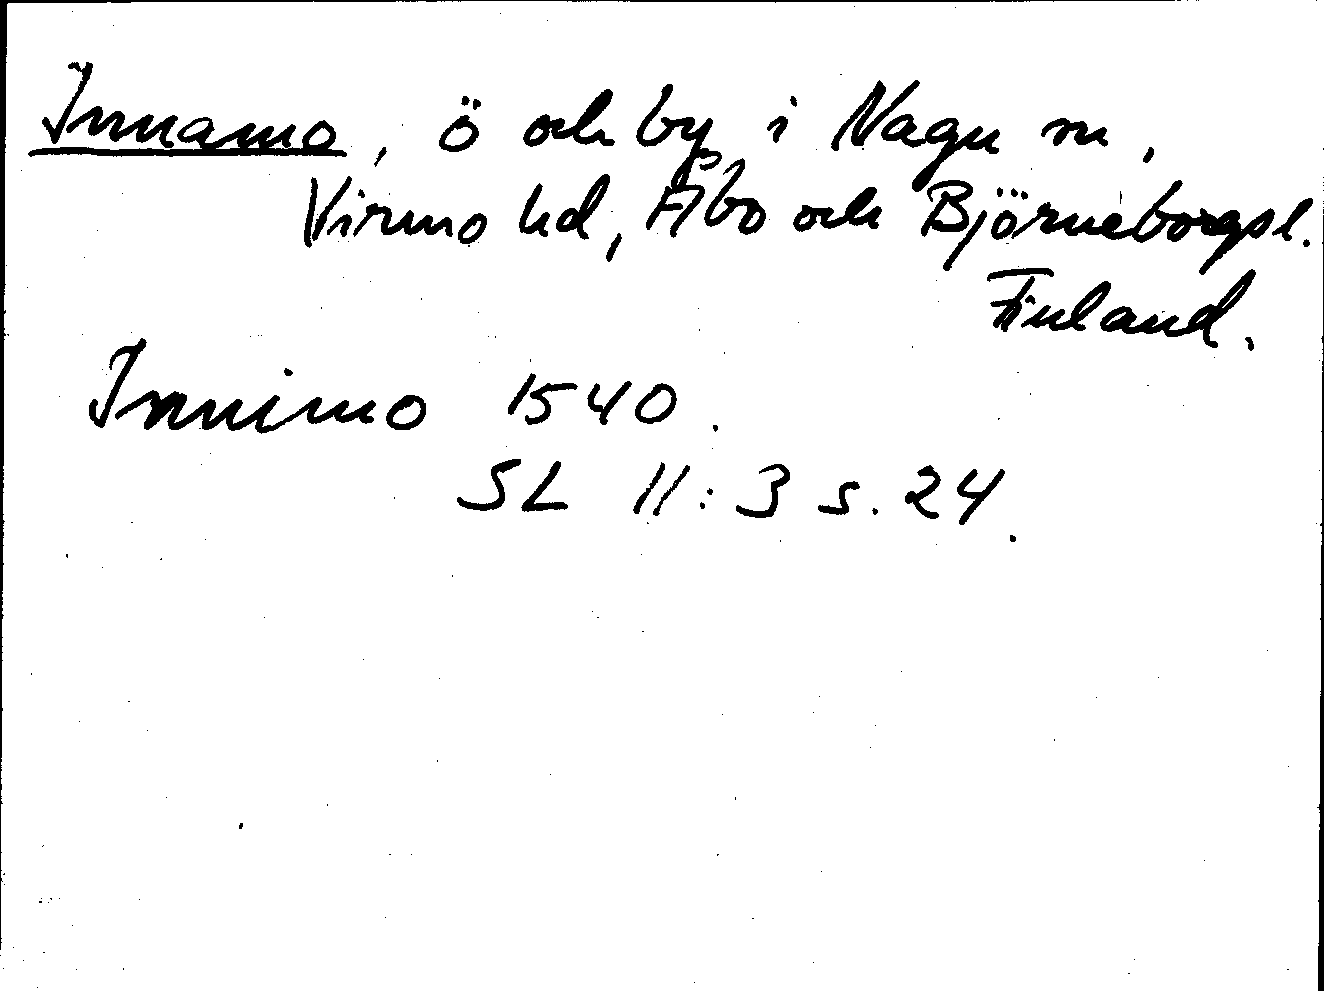 Innamo, ö och by i Nagu sn,
Virmo hd, Åbo och Björneborgsl.
Finland.
Innimo 1540.
SL II:3 s. 24.